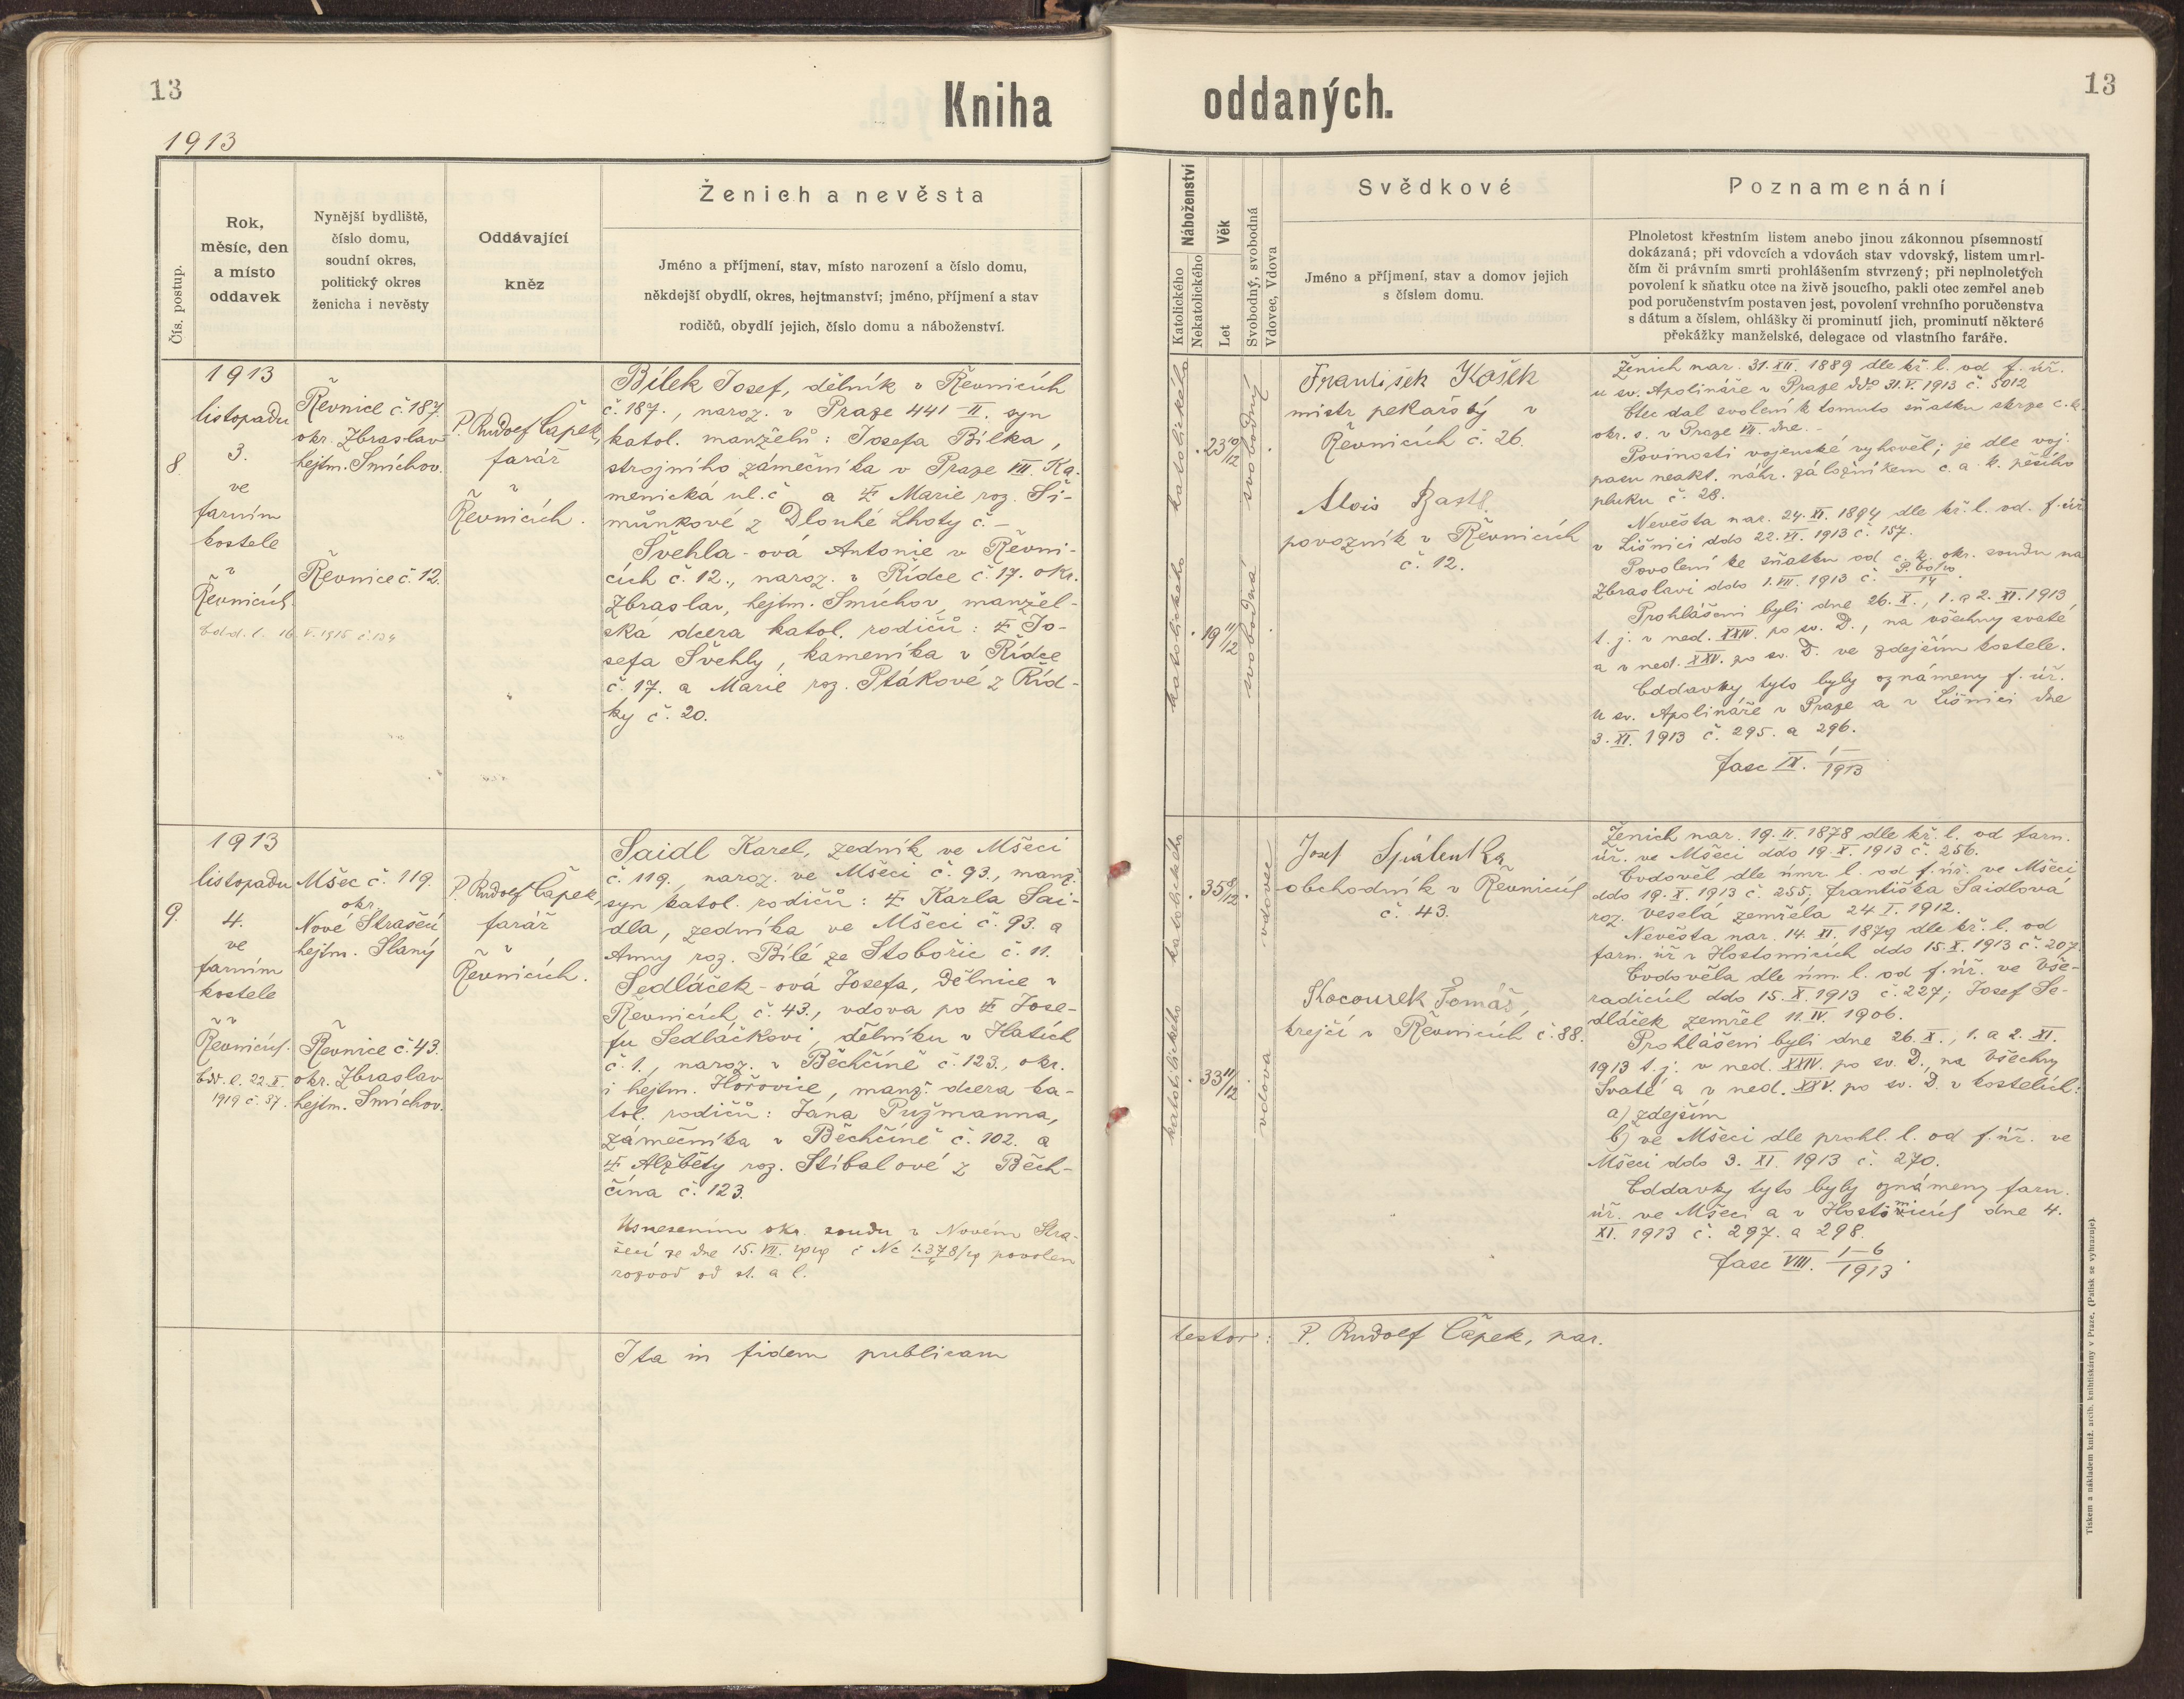 13
Kniha
1913
Čís. postup.
Rok,
měsíc, den
a místo
oddavek
Nynější bydliště,
číslo domu,
soudní okres,
politický okres
ženicha i nevěsty
Oddávající
kněz
Ženich a nevěsta
Jméno a příjmení, stav, místo narození a číslo domu,
někdejší obydlí, okres, hejtmanství; jméno, příjmení a stav
rodičů, obydlí jejich, číslo domu a náboženství.
8.
1913
listopadu
3.
ve
farním
kostele
v
Řevnicích.
Odd. l. 16. V. 1915 č. 134
Řevnice č. 187.
okr. Zbraslav
hejtm. Smíchov.
Řevnice č. 12.
P. Rudolf Čapek,
farář
v
Řevnicích.
Bílek Josef, dělník v Řevnicích
č. 187., naroz. v Praze 441-II. syn
katol. manželů: Josefa Bílka,
strojního zámečníka v Praze VII. Ka-
menická ul. č a Marie roz. Ši-
můnkové z Dlouhé Lhoty č. –
Švehla-ová Antonie v Řevni-
cích č. 12., naroz. v Řídce č. 17. okr.
Zbraslav, hejtm. Smíchov, manžel-
ská dcera katol. rodičů: Jo-
sefa Švehly, kameníka v Řídce
č. 17. a Marie roz. Ptákové z Říd-
ky č. 20.
9.
1913
listopadu
4.
ve
farním
kostele
v
Řevnicích.
Odd. l. 22. X.
1919 č. 37.
Mšec č. 119.
okr.
Nové Strašecí
hejtm. Slaný
Řevnice č. 43.
okr. Zbraslav
hejtm. Smíchov.
P. Rudolf Čapek,
farář
v
Řevnicích.
Saidl Karel, zedník ve Mšeci
č. 119., naroz. ve Mšeci č. 93., manž.
syn katol. rodičů: Karla Sai-
dla, zedníka ve Mšeci č. 93. a
Anny roz. Bílé ze Stobořic č. 11.
Sedláček-ová Josefa, dělnice v
Řevnicích č. 43., vdova po Jose-
fu Sedláčkovi, dělníku v Hatích
č. 1., naroz. v Běchčíně č. 123., okr.
i hejtm. Hořovice, manž. dcera ka-
tol. rodičů: Jana Pužmanna,
zámečníka v Běchčíně č. 102. a
Alžběty roz. Stíbalové z Běch-
čína č. 123.
Usnesením okr. soudu v Novém Stra-
šecí ze dne 15. VII. 1919 č Nc povolen
rozvod od st. a l.
Ita in fidem publicam
oddaných.
13
Náboženství
Katolického
Nekatolického
Věk
Let
Svobodný, svobodná
Vdovec, Vdova
Svědkové
Jméno a příjmení, stav a domov jejich
s číslem domu.
Poznamenání
Plnoletost křestním listem anebo jinou zákonnou písemností
dokázaná; při vdovcích a vdovách stav vdovský, listem umrl-
čím či právním smrti prohlášením stvrzený; při neplnoletých
povolení k sňatku otce na živě jsoucího, pakli otec zemřel aneb
pod poručenstvím postaven jest, povolení vrchního poručenstva
s dátum a číslem, ohlášky či prominutí jich, prominutí některé
překážky manželské, delegace od vlastního faráře.
katolického
23 10/12
svobodný
katolického
19 11/12
svobodná
František Košek
mistr pekařský v
Řevnicích č. 26.
Alois Bastl
povozník v Řevnicích
č. 12.
Ženich nar. 31. XII. 1889 dle kř. l. od f. úř.
u sv. Apolináře v Praze ddo 31. V. 1913 č. 5012
Otec dal svolení k tomuto sňatku skrze c. k.
okr. s. v Praze VII. dne. –
Povinosti vojenské vyhověl; je dle voj.
pasu neakt. náhr. záložníkem c. a k. pěšího
pluku č. 28.
Nevěsta nar. 24. XI. 1894 dle kř. l. od. f. úř
v Lišnici ddo 22. VI. 1913 č. 157.
Povolení ke sňatku od c. k. okr. soudu na
Zbraslavi ddo 1. VII. 1913 č.
Prohlášeni byli dne 26. X., 1. a 2. XI. 1913,
t. j. v ned. XXIV. po sv. D., na všechny svaté
a v ned. XXV. po sv. D. ve zdejším kostele.
Oddavky tyto byly oznámeny f. úř.
u sv. Apolináře v Praze a v Lišnici dne
3. XI. 1913 č. 295. a 296.
fasc IX. 1–/1913
katolického
35 8/12
vdovec
katolického
33 11/12
vdova
Josef Spálenka
obchodník v Řevnicích
č. 43.
Kocourek Tomáš,
krejčí v Řevnicích č. 88.
Ženich nar. 19. II. 1878 dle kř. l. od farn.
úř. ve Mšeci ddo 19. X. 1913 č. 256.
Ovdověl dle úmr. l. od f. úř. ve Mšeci
ddo 19. X. 1913 č. 255; Františka Saidlova
roz. Veselá zemřela 24 I. 1912.
Nevěsta nar. 14. XI. 1879 dle kř. l. od
farn. úř v Hostomicích ddo 15. X. 1913 č. 207
Ovdověla dle úm. l. od f. úř. ve Vše-
radicích ddo 15. X. 1913 č. 227; Josef Se-
dláček zemřel 11. IV. 1906.
Prohlášeni byli dne 26. X., 1. a 2. XI.
1913 t. j. v ned. XXIV. po sv. D., na Všechny
Svaté a v ned. XXV. po sv. D. v kostelích:
a) zdejším
b) ve Mšeci dle prohl. l. od f. úř. ve
Mšeci ddo 3. XI. 1913 č. 270.
Oddavky tyto byly oznámeny farn.
úř. ve Mšeci a v Hostomicích dne 4.
XI. 1913 č. 297. a 298.
fasc VIII. 1–6/1913.
testor: P. Rudolf Čapek, par.
Tiskem a nákladem kníž. arcib. knihtiskárny v Praze. (Patisk se vyhrazuje).